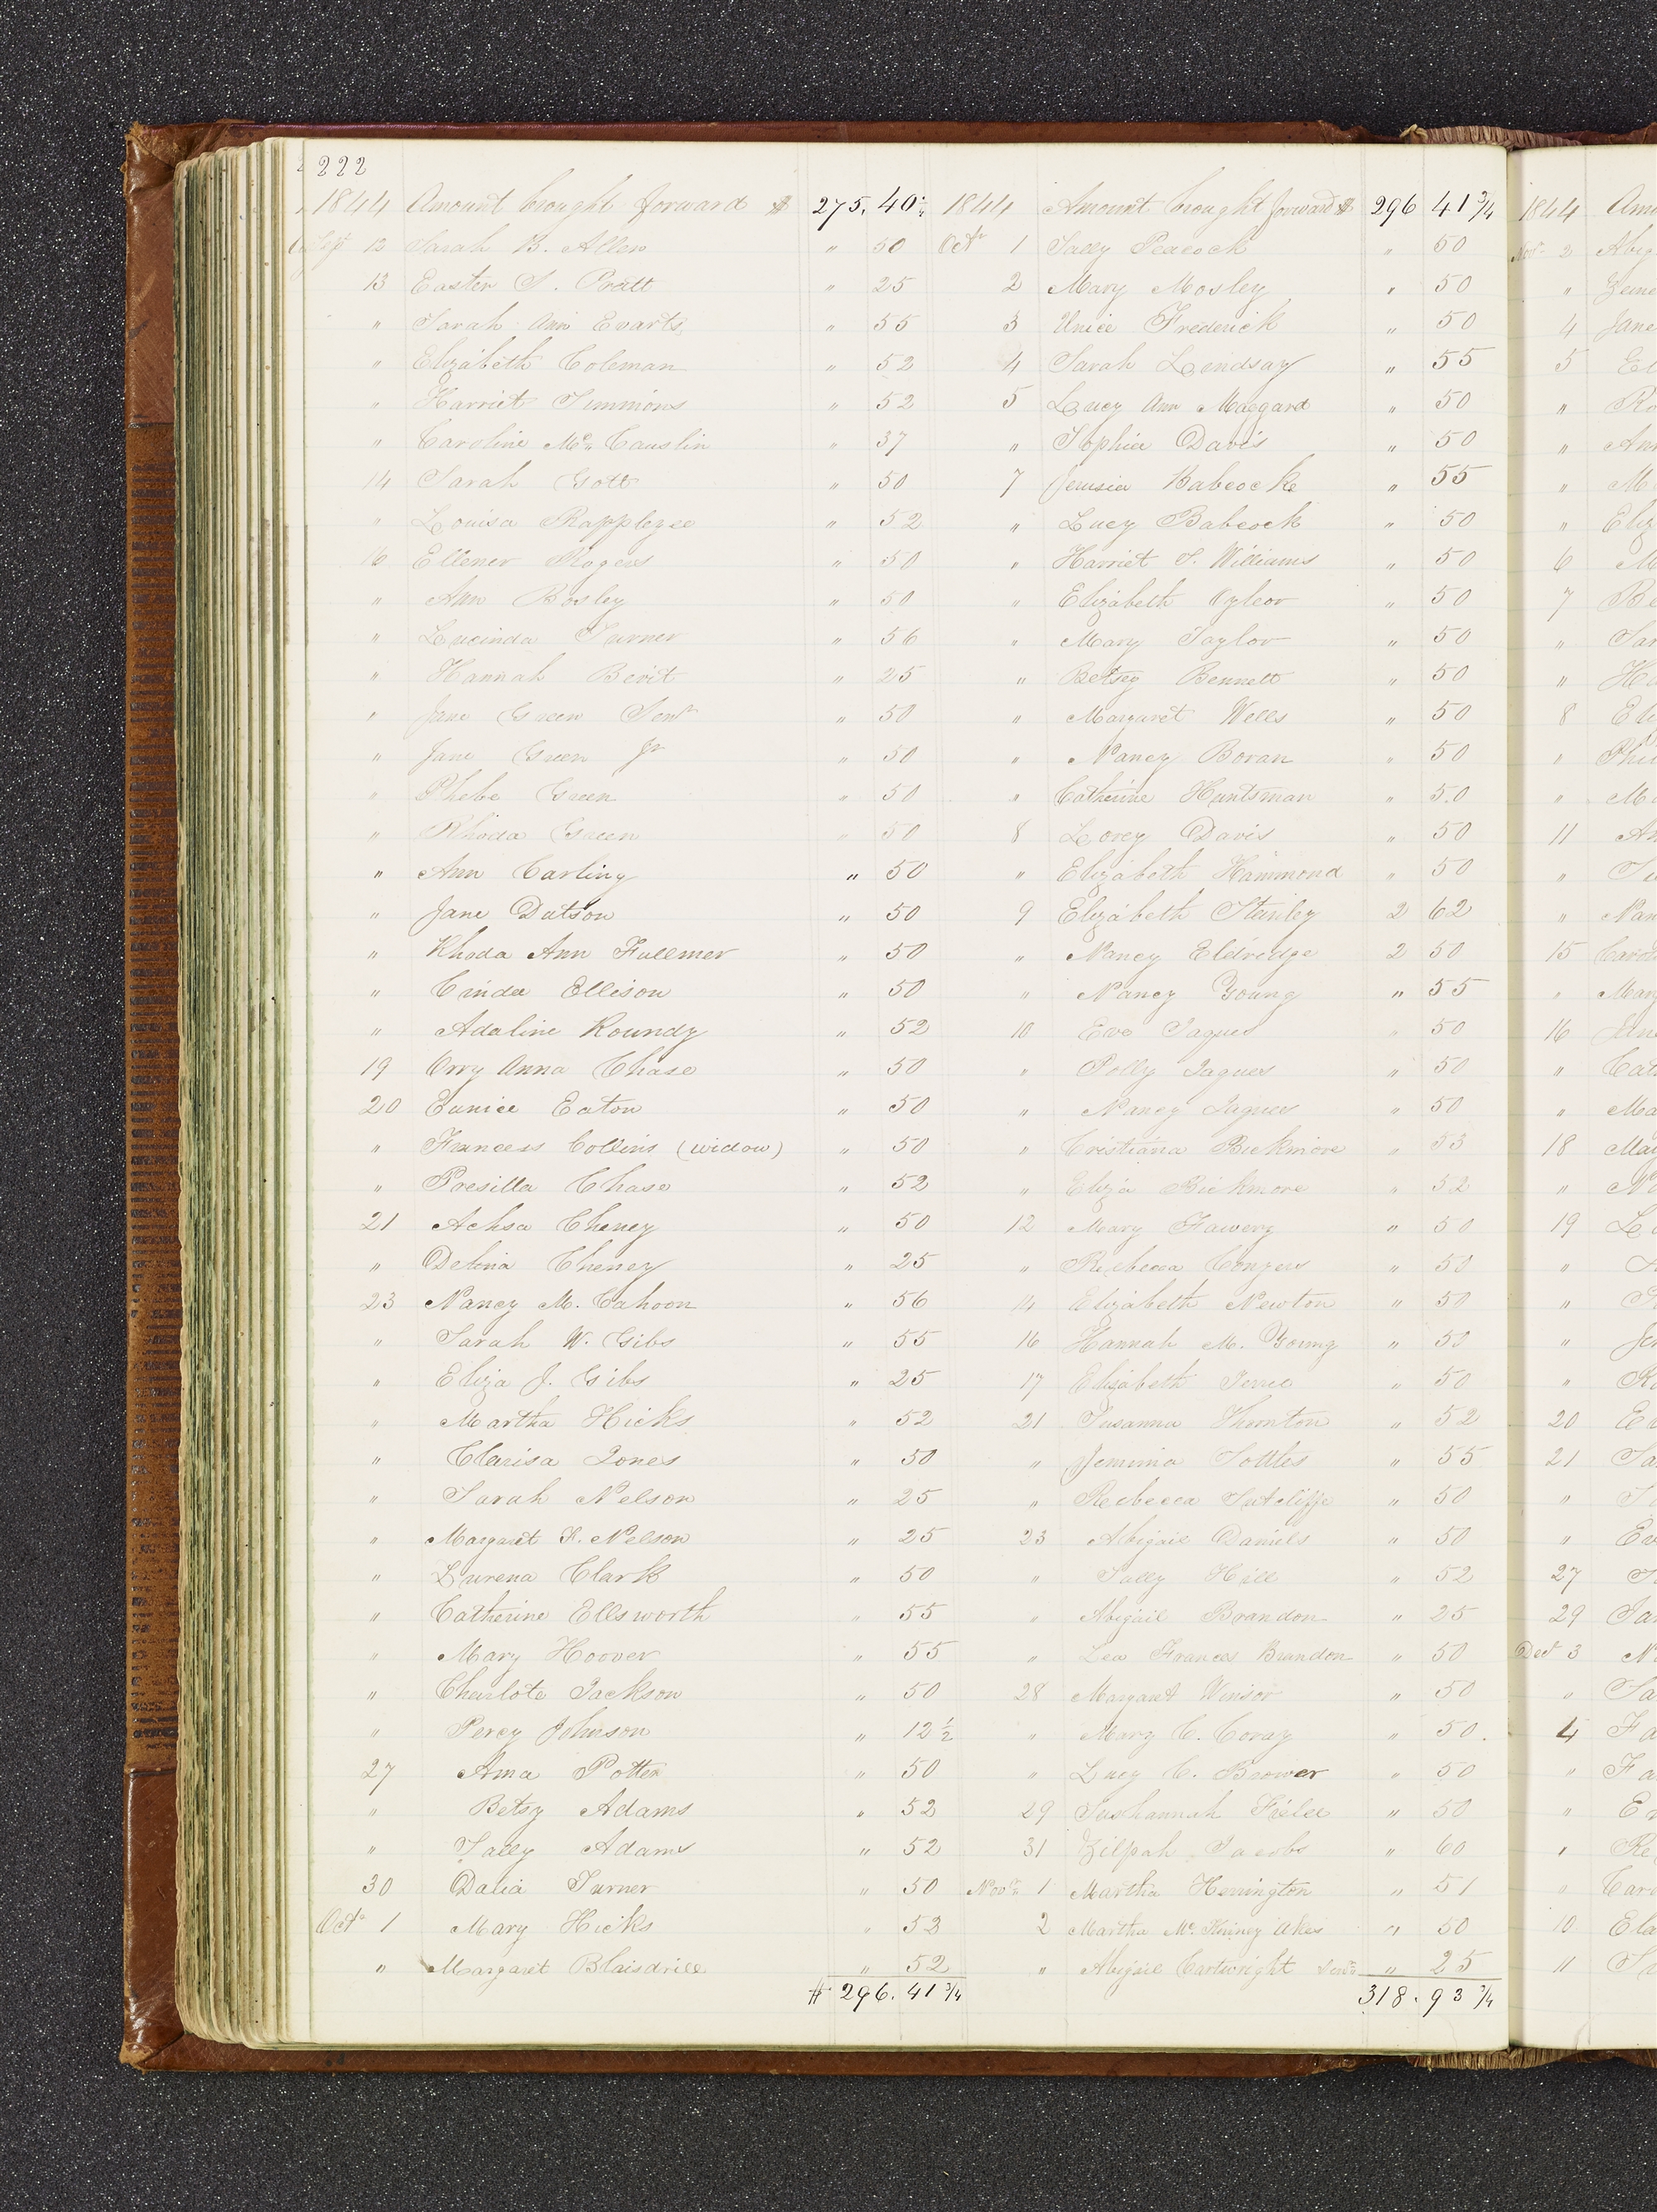 222
1844 Amount brought forward $ 275. 40 1/4
Sept 12 Sarah B. Allen " 50
13 Easter S. Pratt " 25
" Sarah Ann Evarts " 55
" Elizabeth Coleman " 52
" Harriet Simmons " 52
" Caroline Mc Causlin " 37
14 Sarah Gott " 50
" Louisa Rapplezee " 52
16 Ellener Rogers " 50
" Ann Bosley " 50
" Lucinda Turner " 56
" Hannah Bevit " 25
" Jane Green Senr " 50
" Jane Green Jr " 50
" Phebe Green " 50
" Rhoda Green " 50
" Ann Carling " 50
" Jane Dutson " 50
" Rhoda Ann Fullmer " 50
" Cinda Ellison " 50
" Adaline Roundy " 52
19 Orry Anna Chase " 50
20 Eunice Eaton " 50
" Francess Collins (widow) " 50
" Presilla Chase " 52
21 Achsa Cheney " 50
" Delina Cheney " 25
23 Nancy M. Cahoon " 56
" Sarah W. Gibs " 55
" Eliza J. Gibs " 25
" Martha Hicks " 52
" Clarisa Jones " 50
" Sarah Nelson " 25
" Margaret F. Nelson " 25
" Lurena Clark " 50
" Catherine Ellsworth " 55
" Mary Hoover " 55
" Charlote Jackson " 50
" Percy Johnson " 12 1/2
27 Ama Potter " 50
" Betsy Adams " 52
" Sally Adams " 52
30 Dalia Turner " 50
Oct. 1 Mary Hicks " 53
" Margaret Blaisdrill " 52
$ 296. 41 3/4
1844 Amount brought forward $ 296 41 3/4
Octr 1 Sally Peacock " 50
2 Mary Mosley " 50
3 Unice Frederick " 50
4 Sarah Lindsay " 55
5 Lucy Ann Maggard " 50
" Sophia Davis " 50
7 Jerusia Babcocke " 55
" Lucy Babcock " 50
" Harriet S. Williams " 50
" Elizabeth Oyleor " 50
" Mary Taylor " 50
" Betsey Bennett " 50
" Margaret Wells " 50
" Nancy Boran " 50
" Catherine Huntsman " 50
8 Lovey Davis " 50
" Elizabeth Hammond " 50
9 Elizabeth Stanley 2 62
" Nancy Eldredge 2 50
" Nancy Young " 55
10 Eve Jaques " 50
" Polly Jaques " 50
" Nancy Jaques " 50
" Cristiana Bickmore " 53
" Eliza Bickmore " 52
12 Mary Fawcry " 50
" Rebecca Conyers " 50
14 Elizabeth Newton " 50
16 Hannah M. Young " 50
17 Elizabeth Terrie " 50
21 Susanna Thornton " 52
" Jemima Sottles " 55
" Rebecca Sutcliffe " 50
23 Abigail Daniels " 50
" Sally Hill " 52
" Abigail Brandon " 25
" Lea Frances Brandon " 50
28 Margaret Winsor " 50
" Mary C. Coray " 50.
" Lucy C. Brower " 50
29 Sushannah Fislee " 50
31 Zilpah Jacobs " 60
Novr 1 Martha Herrington " 51
2 Martha Mc Kinney Akes " 50
" Abigail Cartwright Senr " 25
318. 93 3/4
1844
Nov. 2
"
4 Jane
5
"
"
"
"
6
7
"
"
8
"
"
11
"
"
15
"
16
"
"
18
"
19
"
"
"
"
20
21
"
"
27
29
Decr 3
"
4
"
"
"
"
10
11